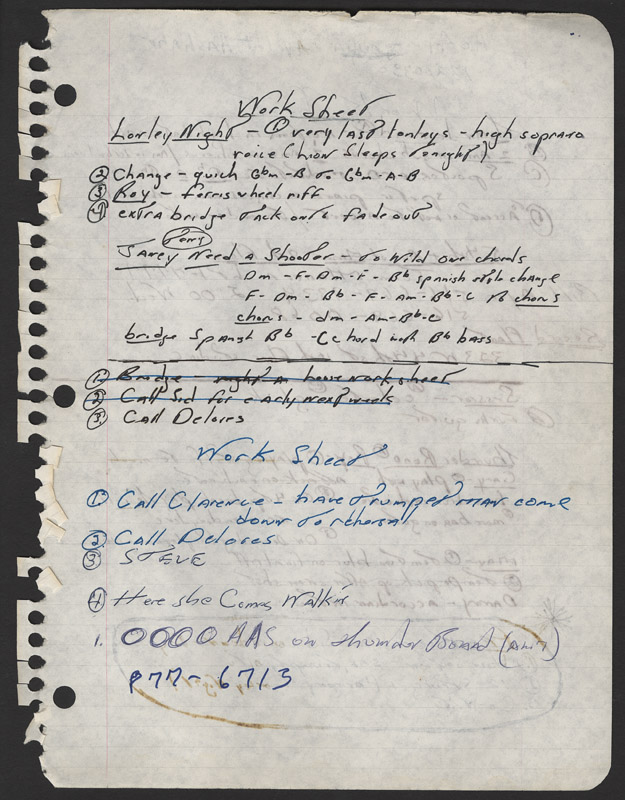 Work Sheet
Lonley Night - ① very last lonleys - high soprano
voice (Lion Sleeps Tonight)
② Change - quick Gbm - B to Gbm - A - B
③ Roy - ferris wheel riff
④ extra bridge tack onto fade out
Terry
Janey Need a Shooter - to Wild one chords
Dm - F - Dm - F - Bb spanish style change
F - Dm - Bb - F - Am - Bb - C to chorus
chorus - dm - Am - Bb - C
bridge Spanish Bb - C chord with Bb bass
① Bridge - night an house work sheet
② Call Sid for early next week
③ Call Delores
Work Sheet
① Call Clarence - have trumpet man come
down to rehersal
② Call Delores
③ STEVE
④ Here she Comes Walkin
1. OOOO AAS on thunder Road
P77-6713